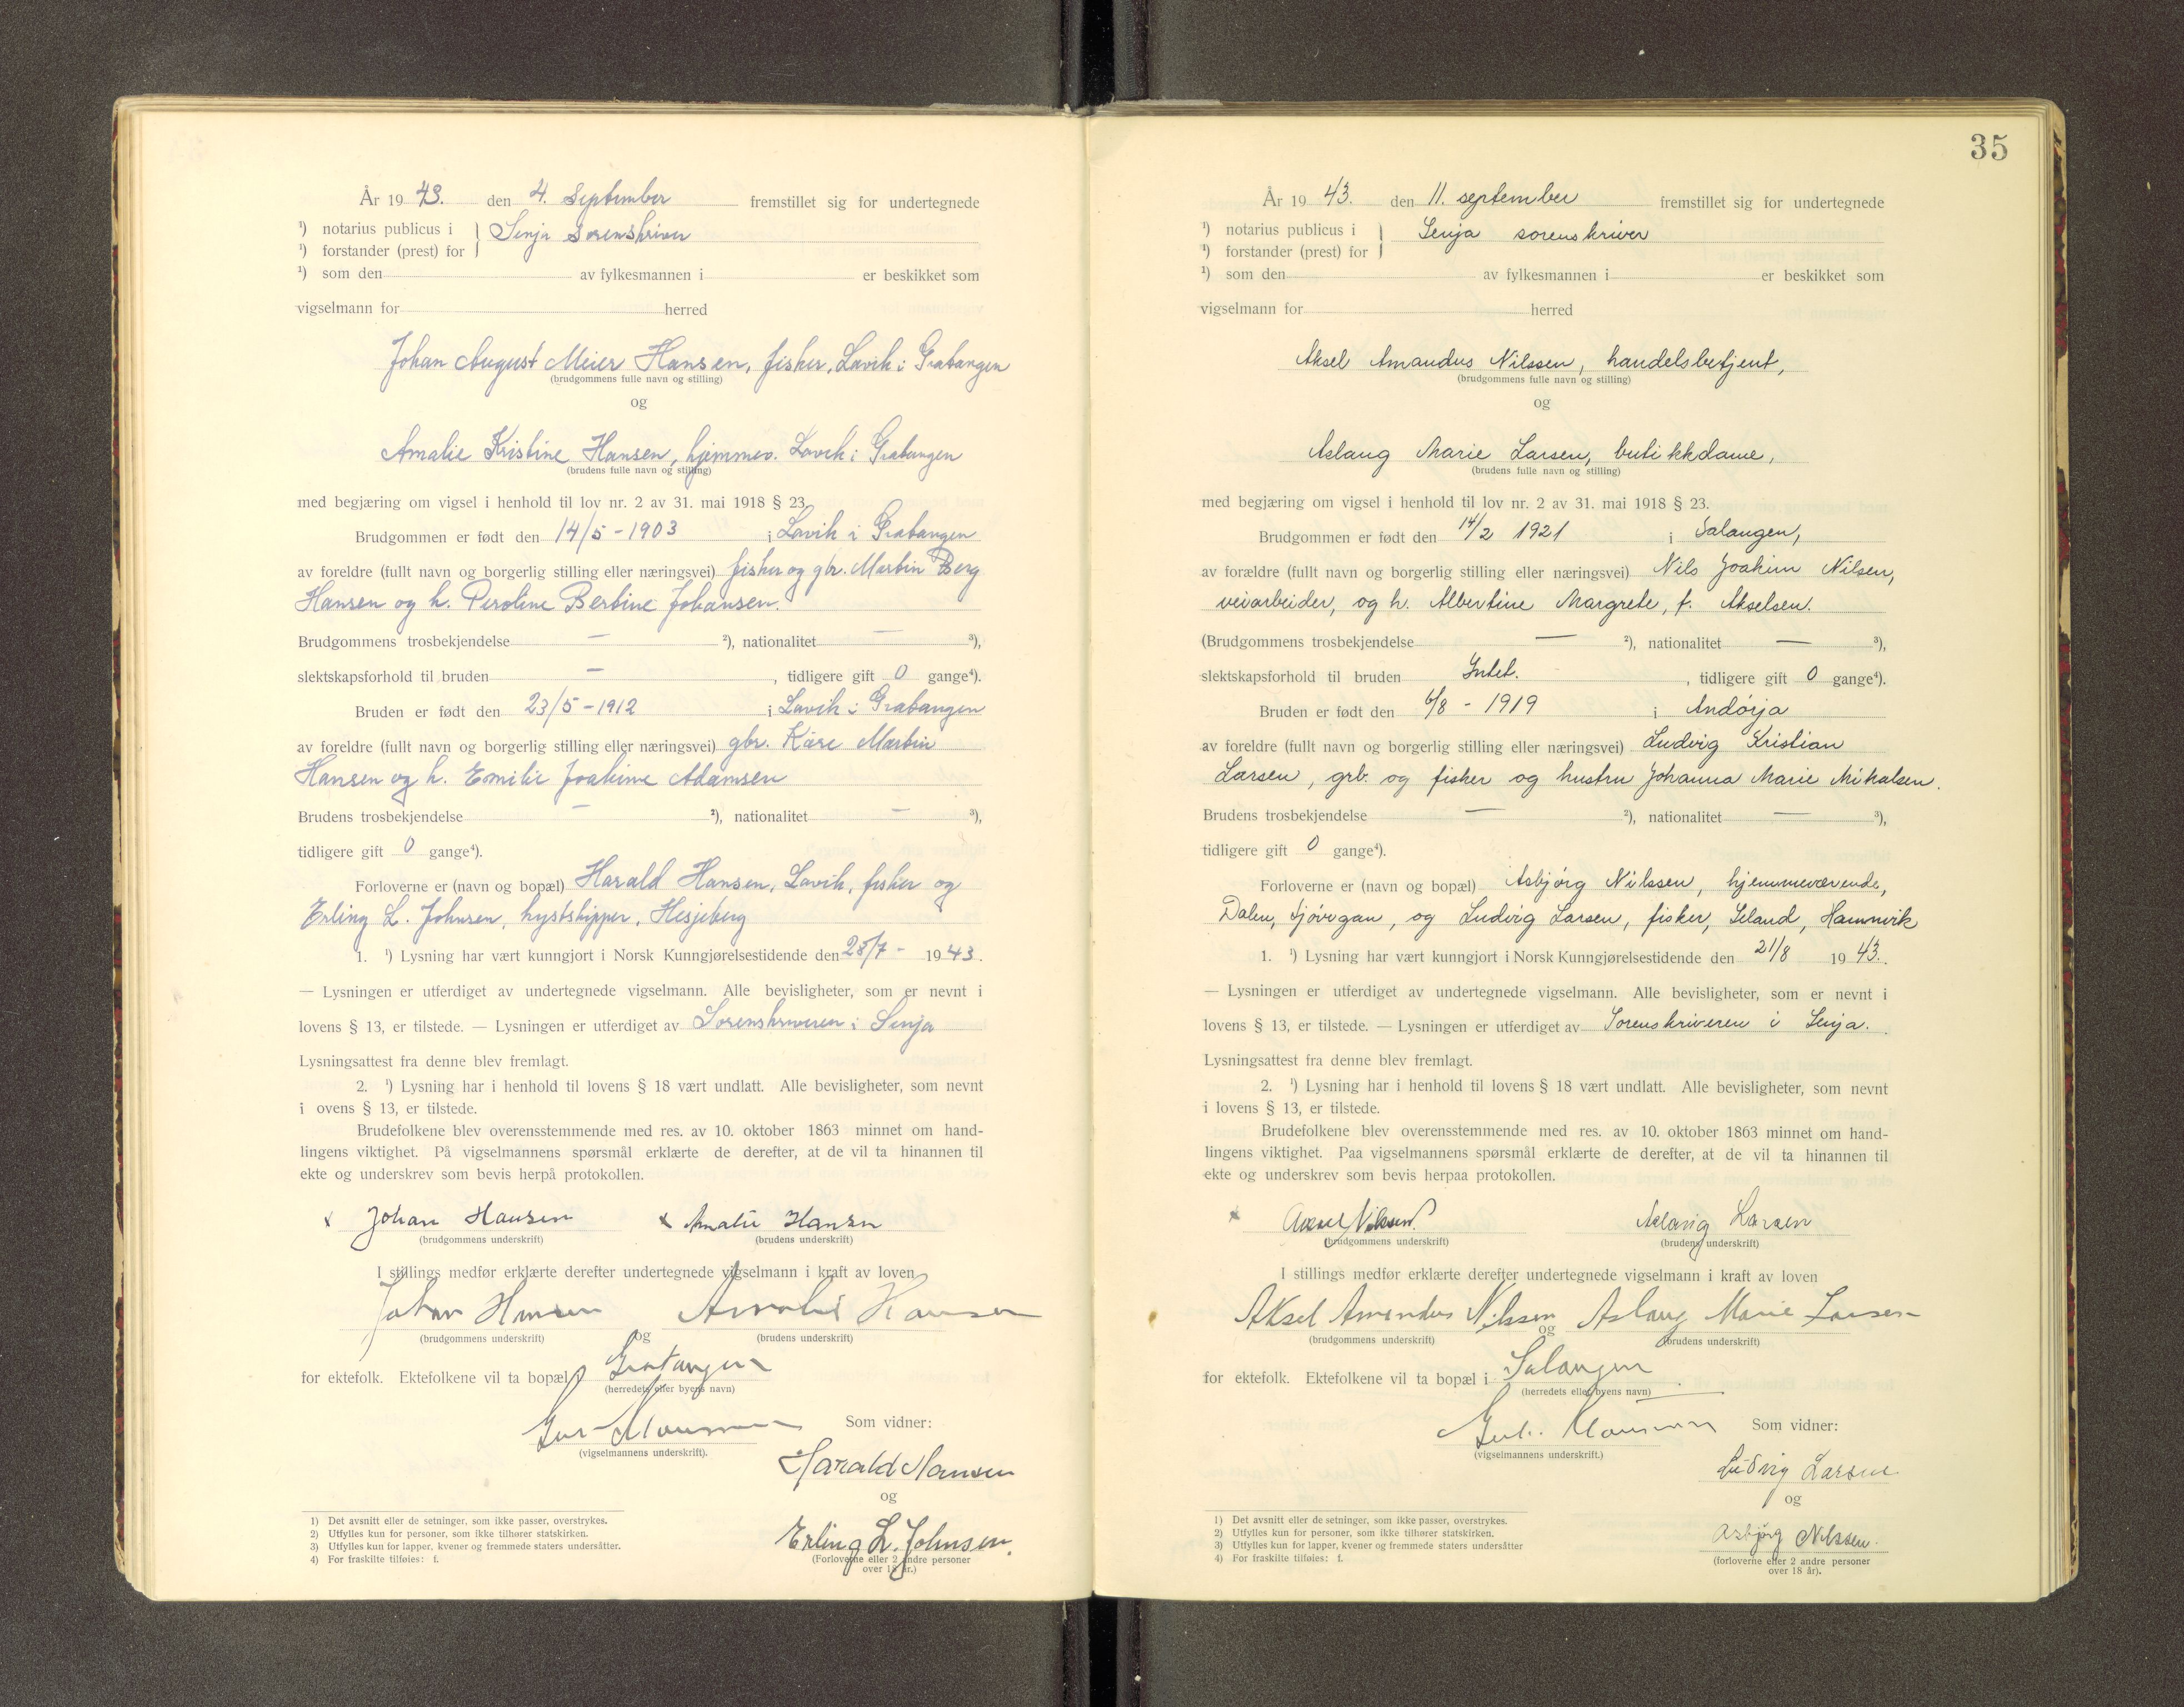 År 19 43. den 4. September fremstillet sig for undertegnede
¹) notarius publicus i } Senja Sorenskriver
¹) forstander (prest) for
¹) som den av fylkesmannen i er beskikket som
vigselmann for herred
Johan August Meier Hansen, fisker, Lavik i Gratangen
(brudgommens fulle navn og stilling)
og
Amalie Kristine Hansen, hjemmev. Lavik i Gratangen
(brudens fulle navn og stilling)
med begjæring om vigsel i henhold til lov nr. 2 av 31. mai 1918 § 23.
Brudgommen er født den 14/5 - 1903 i Lavik i Gratangen
av foreldre (fullt navn og borgerlig stilling eller næringsvei) fisker og gbr. Martin Berg
Hansen og h. Peroline Bertine Johansen.
Brudgommens trosbekjendelse — ²), nationalitet — ³),
slektskapsforhold til bruden — , tidligere gift 0 gange⁴).
Bruden er født den 23/5 - 1912 i Lavik i Gratangen
av foreldre (fullt navn og borgerlig stilling eller næringsvei) gbr. Kåre Martin
Hansen og h. Emilie Joakime Adamsen
Brudens trosbekjendelse — ²), nationalitet — ³),
tidligere gift 0 gange⁴).
Forloverne er (navn og bopæl) Harald Hansen, Lavik, fisker og
Erling L. Johnsen, kystskipper, Hesjeberg
1. ¹) Lysning har vært kunngjort i Norsk Kunngjørelsestidende den 28/7 - 19 43.
— Lysningen er utferdiget av undertegnede vigselmann. Alle bevisligheter, som er nevnt i
lovens § 13, er tilstede. — Lysningen er utferdiget av Sorenskriveren i Senja
Lysningsattest fra denne blev fremlagt.
2. ¹) Lysning har i henhold til lovens § 18 vært undlatt. Alle bevisligheter, som nevnt
i ovens § 13, er tilstede.
Brudefolkene blev overensstemmende med res. av 10. oktober 1863 minnet om hand-
lingens viktighet. På vigselmannens spørsmål erklærte de derefter, at de vil ta hinannen til
ekte og underskrev som bevis herpå protokollen.
x Johan Hansen x Amalie Hansen
(brudgommens underskrift) (brudens underskrift)
I stillings medfør erklærte derefter undertegnede vigselmann i kraft av loven
Johan Hansen Amalie Hansen
(brudgommens underskrift) og (brudens underskrift)
for ektefolk. Ektefolkene vil ta bopæl i Gratangen
(herredets eller byens navn)
Som vidner:
(vigselmannens underskrift).
Harald Hansen
og
Erling L. Johnsen.
(Forloverne eller 2 andre personer
over 18 år.)
1) Det avsnitt eller de setninger, som ikke passer, overstrykes.
2) Utfylles kun for personer, som ikke tilhører statskirken.
3) Utfylles kun for lapper, kvener og fremmede staters undersåtter.
4) For fraskilte tilføies: f.
35
År 19 43. den 11. september fremstillet sig for undertegnede
¹) notarius publicus i } Senja sorenskriver
¹) forstander (prest) for
¹) som den av fylkesmannen i er beskikket som
vigselmann for herred
Aksel Amandus Nilssen, handelsbetjent,
(brudgommens fulle navn og stilling)
og
Aslaug Marie Larsen, butikkdame,
(brudens fulle navn og stilling)
med begjæring om vigsel i henhold til lov nr. 2 av 31. mai 1918 § 23.
Brudgommen er født den 14/2 1921 i Salangen,
av forældre (fullt navn og borgerlig stilling eller næringsvei) Nils Joakim Nilsen,
veiarbeider, og h. Albertine Margrete, f. Akselsen.
(Brudgommens trosbekjendelse — ²), nationalitet — ³),
slektskapsforhold til bruden Intet. , tidligere gift 0 gange⁴).
Bruden er født den 6/8 - 1919 i Andörja
av foreldre (fullt navn og borgerlig stilling eller næringsvei) Ludvig Kristian
Larsen, grb. og fisker og hustru Johanna Marie Mikalsen.
Brudens trosbekjendelse — ²), nationalitet — ³),
tidligere gift 0 gange⁴).
Forloverne er (navn og bopæl) Asbjörg Nilssen, hjemmeværende,
Dalen, Sjövegan, og Ludvig Larsen, fisker, Ileland, Hamnvik
1. ¹) Lysning har vært kunngjort i Norsk Kunngjørelsestidende den 21/8 19 43.
— Lysningen er utferdiget av undertegnede vigselmann. Alle bevisligheter, som er nevnt i
lovens § 13, er tilstede. — Lysningen er utferdiget av Sorenskriveren i Senja.
Lysningsattest fra denne blev fremlagt.
2. ¹) Lysning har i henhold til lovens § 18 vært undlatt. Alle bevisligheter, som nevnt
i lovens § 13, er tilstede.
Brudefolkene blev overensstemmende med res. av 10. oktober 1863 minnet om hand-
lingens viktighet. Paa vigselmannens spørsmål erklærte de derefter, at de vil ta hinannen til
ekte og underskrev som bevis herpaa protokollen.
x Aksel Nilssen. Aslaug Larsen
(brudgommens underskrift) (brudens underskrift)
I stillings medfør erklærte derefter undertegnede vigselmann i kraft av loven
Aksel Amandus Nilssen Aslaug Marie Larsen
(brudgommens underskrift) og (brudens underskrift)
for ektefolk. Ektefolkene vil ta bopæl i Salangen
(herredets eller byens navn)
Som vidner:
(vigselmannens underskrift.)
Ludvig Larsen
og
Asbjørg Nilssen.
(forloverne eller 2 andre personer
over 18 år).
1) Det avsnitt eller de setninger, som ikke passer, overstrykes.
2) Utfylles kun for personer, som ikke tilhører statskirken.
3) Utfylles kun for lapper, kvener og fremmede staters undersåtter
4) For fraskilte tilføies: f.